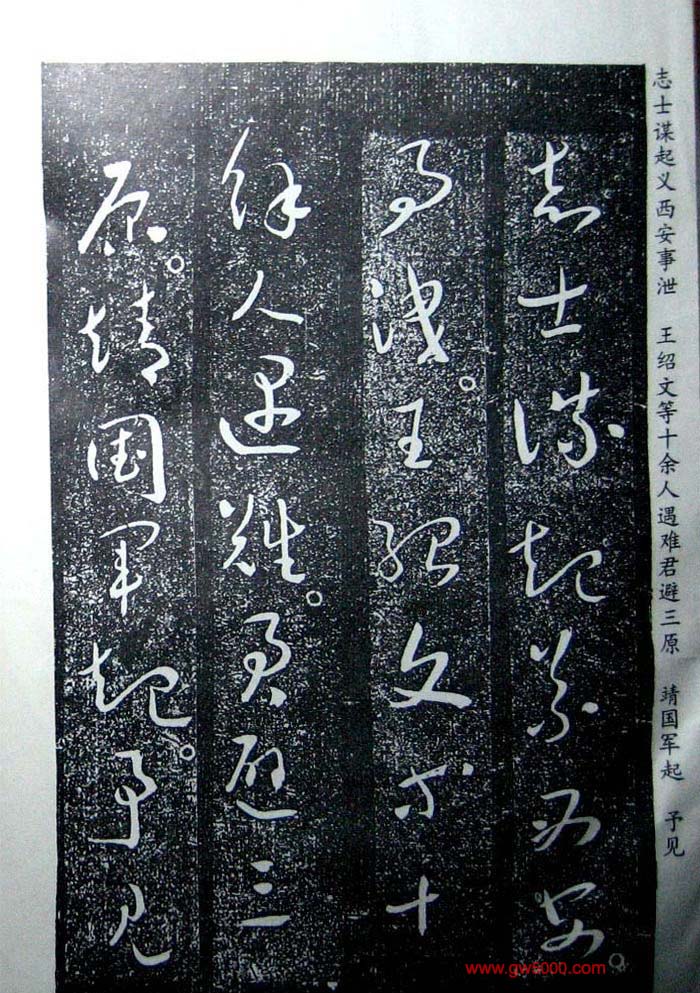 志士谋起义西安事泄 王绍文等十余人遇难君避三原 靖国军起 予见
志士謀起義西安。
事洩。王紹文等十
餘人遇難。君避三
原。靖國軍起。予見
www.gw8000.com